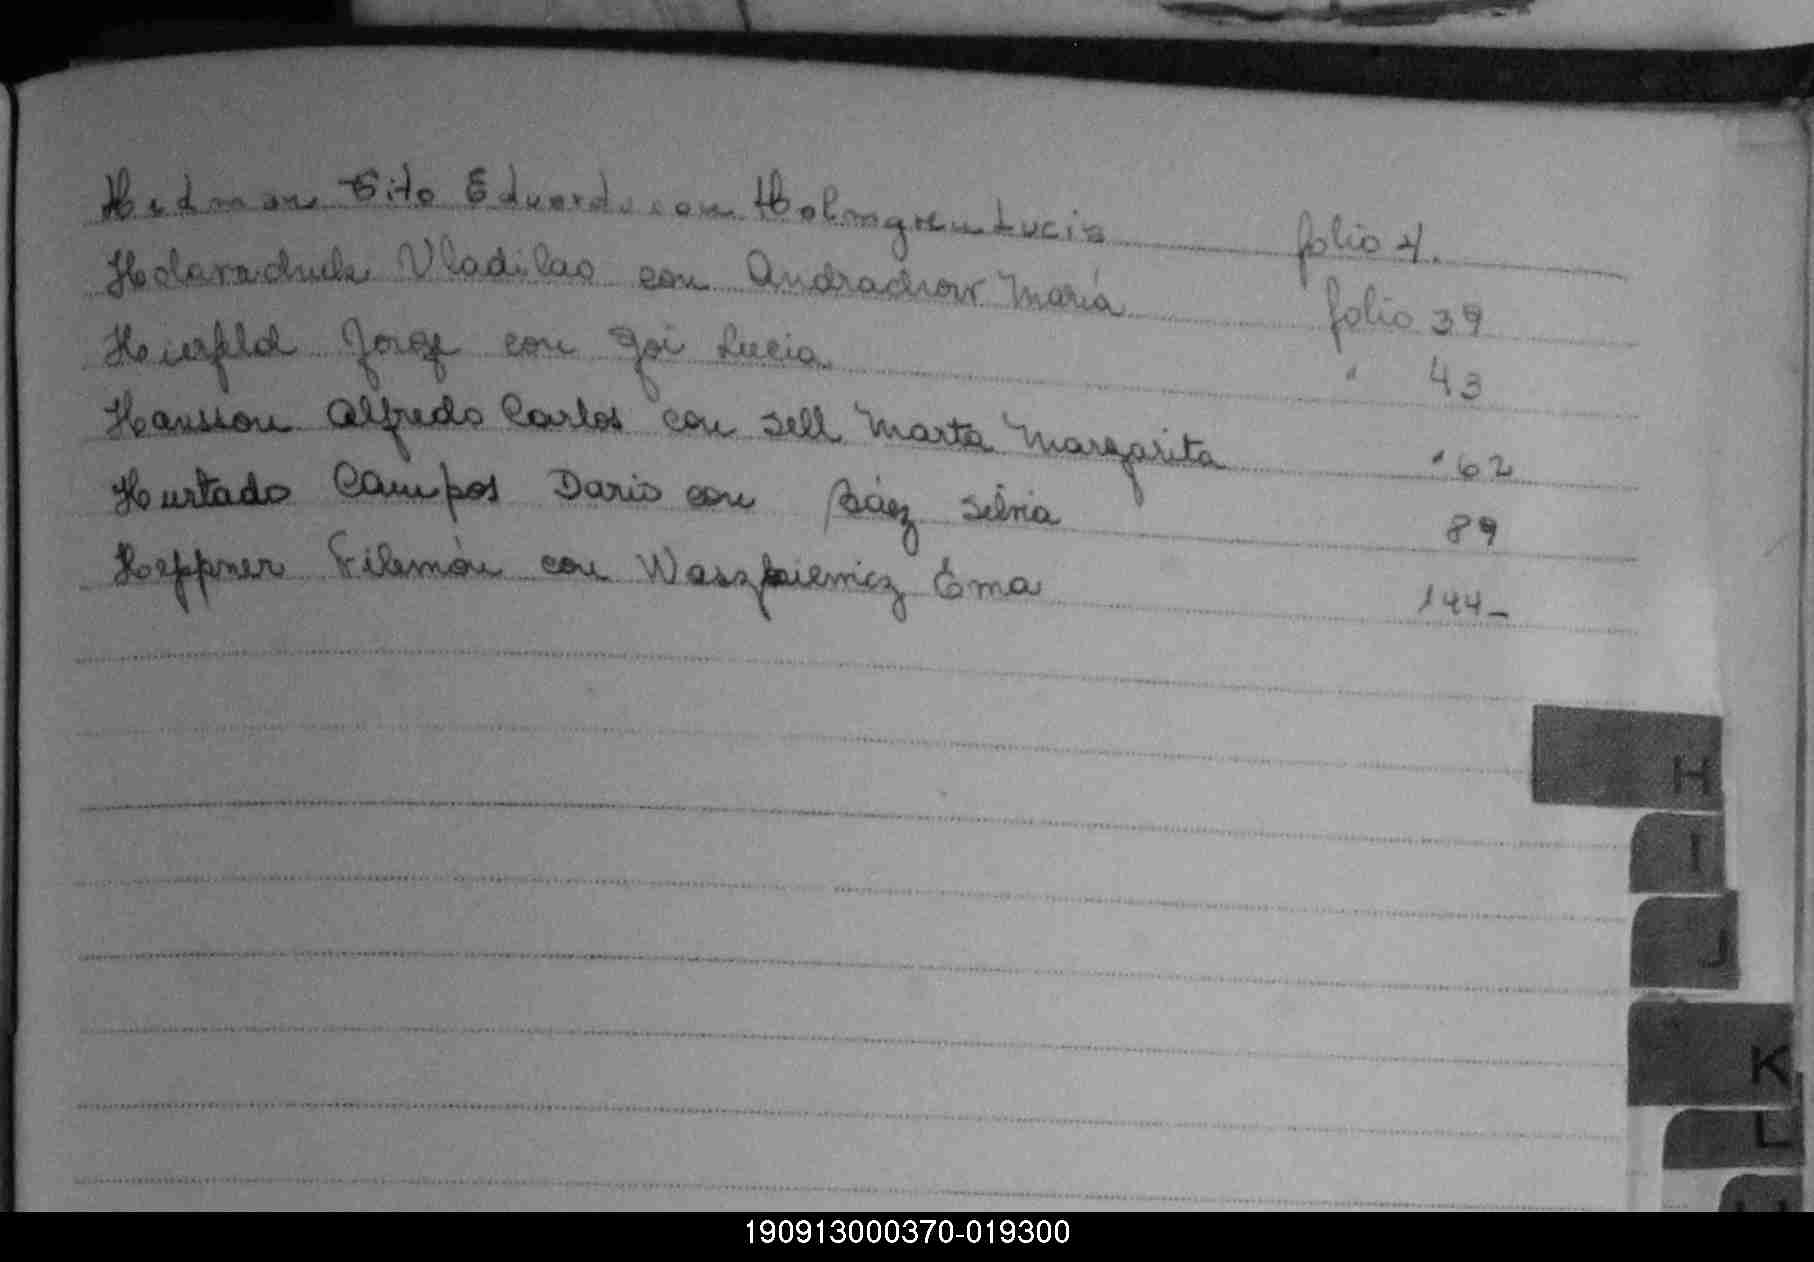 Hedman Tito Eduardo con Holmgren Lucia folio 4.
Vladilao con Andrachow María folio 39
Jorge con Goi Lucia " 43
Hansson Alfredo Carlos con Sell Marta Margarita " 62
Hurtado Campos Dario con Báez Silvia 89
Heppner Filemón con Ema 144-
H
I
J
K
L
190913000370-019300